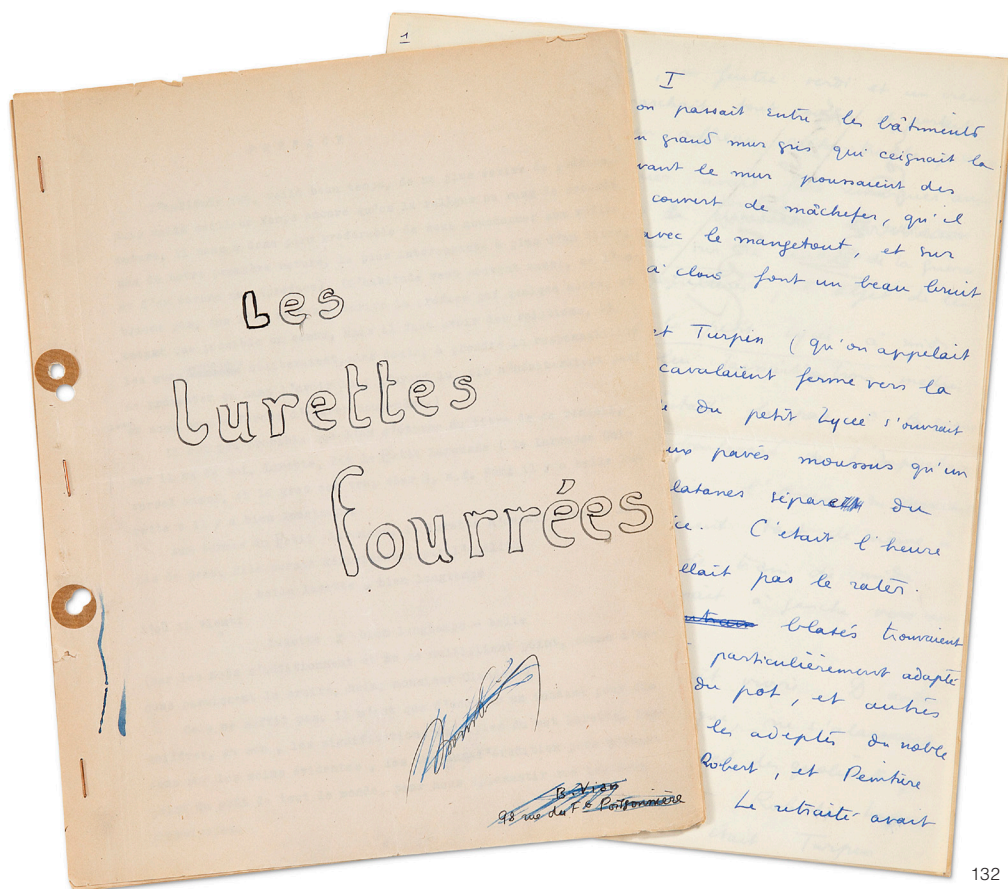 Les
lurettes
fourrées
B. Vian
98 rue du Fg Poissonnière
1
I
on passait entre les bâtiments
grand mur gris qui ceignait la
vant le mur poussaient des
couvert de mâchefer, qu'il
avec le mangetout, et sur
à clous font un beau bruit
et Turpin (qu'on appelait
cavalaient ferme vers la
du petit Lycée s'ouvrait
ux pavés moussus qu'un
latanes sépare du
ice. C'était l'heure
llait pas le rater.
blasés trouvaient
particulièrement adapté
du pot, et autres
les adeptes du noble
Robert, et Peinture
Le retraité avait
132